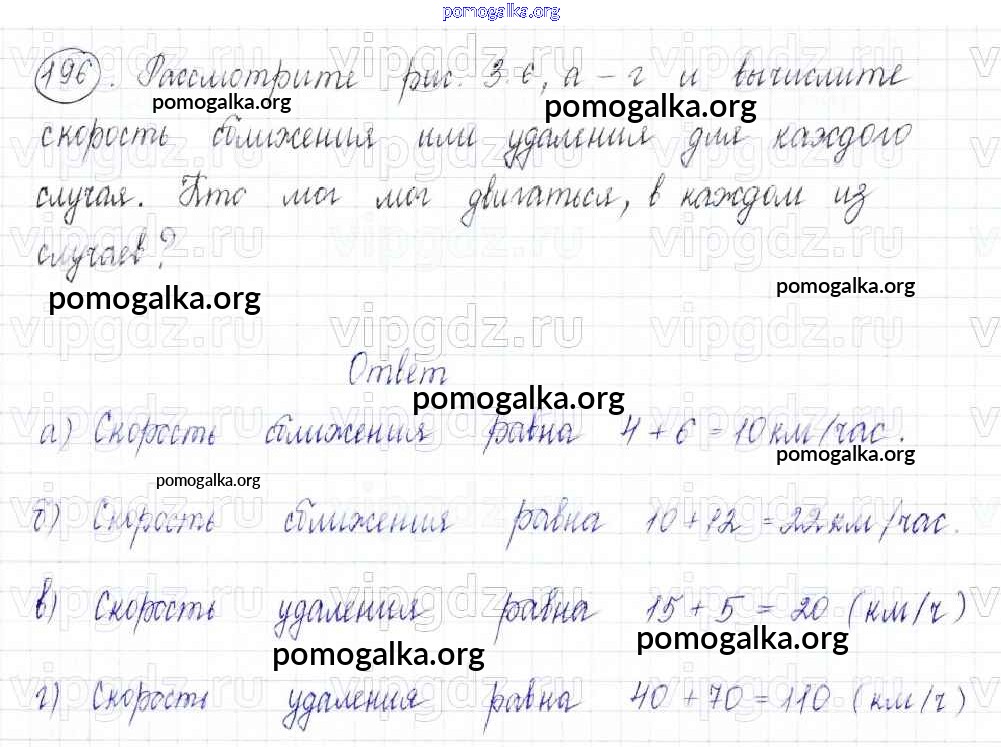 pomogalka.org
196. Рассмотрите рис. 3.6, а - г и вычислите
pomogalka.org pomogalka.org
скорость сближения или удаления для каждого
случая. Кто мог мог двигаться, в каждом из
случаев?
pomogalka.org
pomogalka.org
vipgdz.ru vipgdz.ru vipgdz.ru
Ответ
pomogalka.org
а) Скорость сближения равна 4 + 6 = 10 км/час.
pomogalka.org
pomogalka.org
б) Скорость сближения равна 10 + 12 = 22 км/час.
в) Скорость удаления равна 15 + 5 = 20 (км/ч)
pomogalka.org pomogalka.org
г) Скорость удаления равна 40 + 70 = 110 (км/ч)